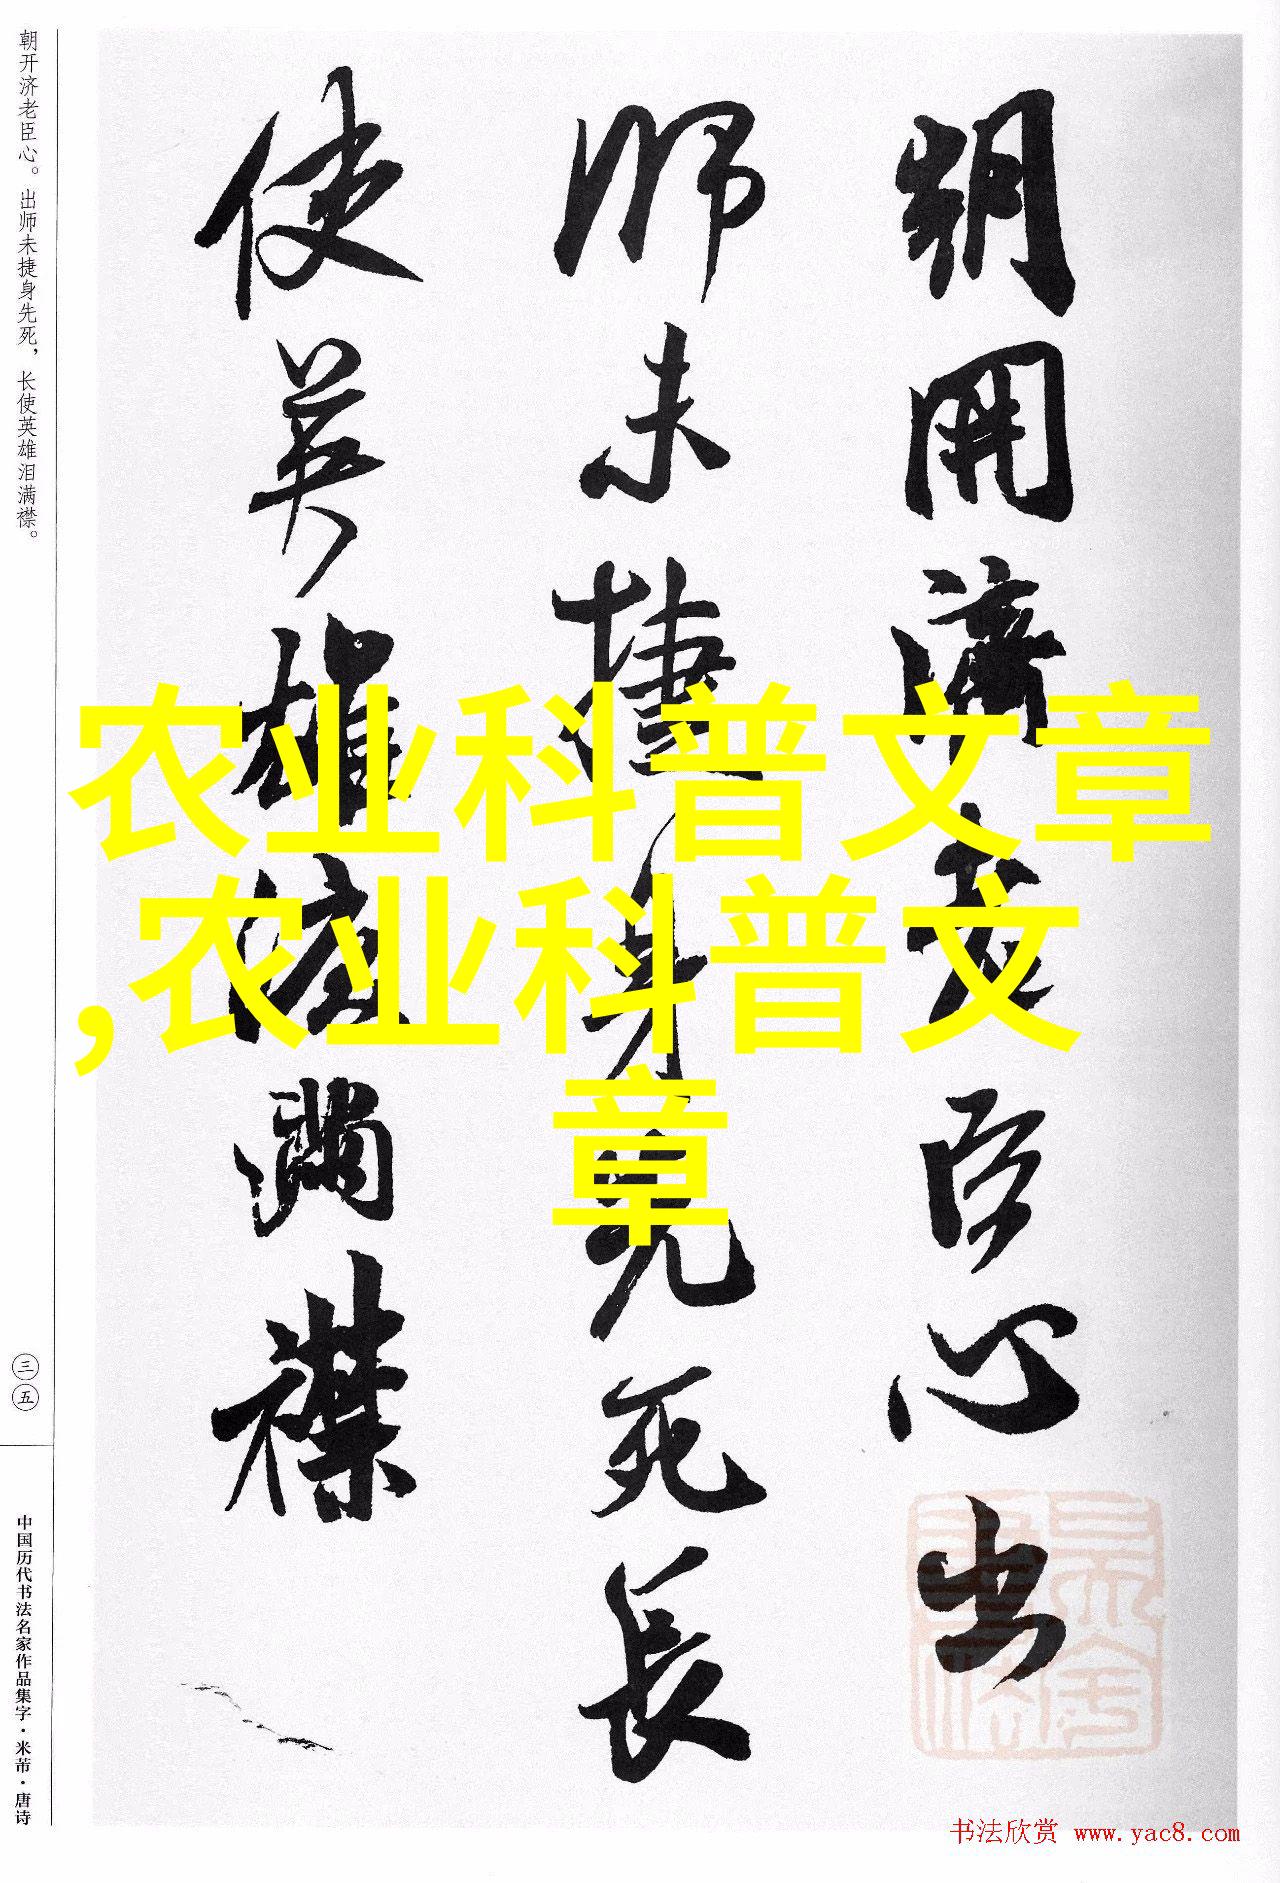 朝開濟老臣心出
师未捷身先死長
使英雄泪滿襟
朝开济老臣心。出师未捷身先死，长使英雄泪满襟。
三五
中国历代书法名家作品集字·米芾·唐诗
农业科普文章
,农业科普文
章
书法欣赏 www.yac8.com